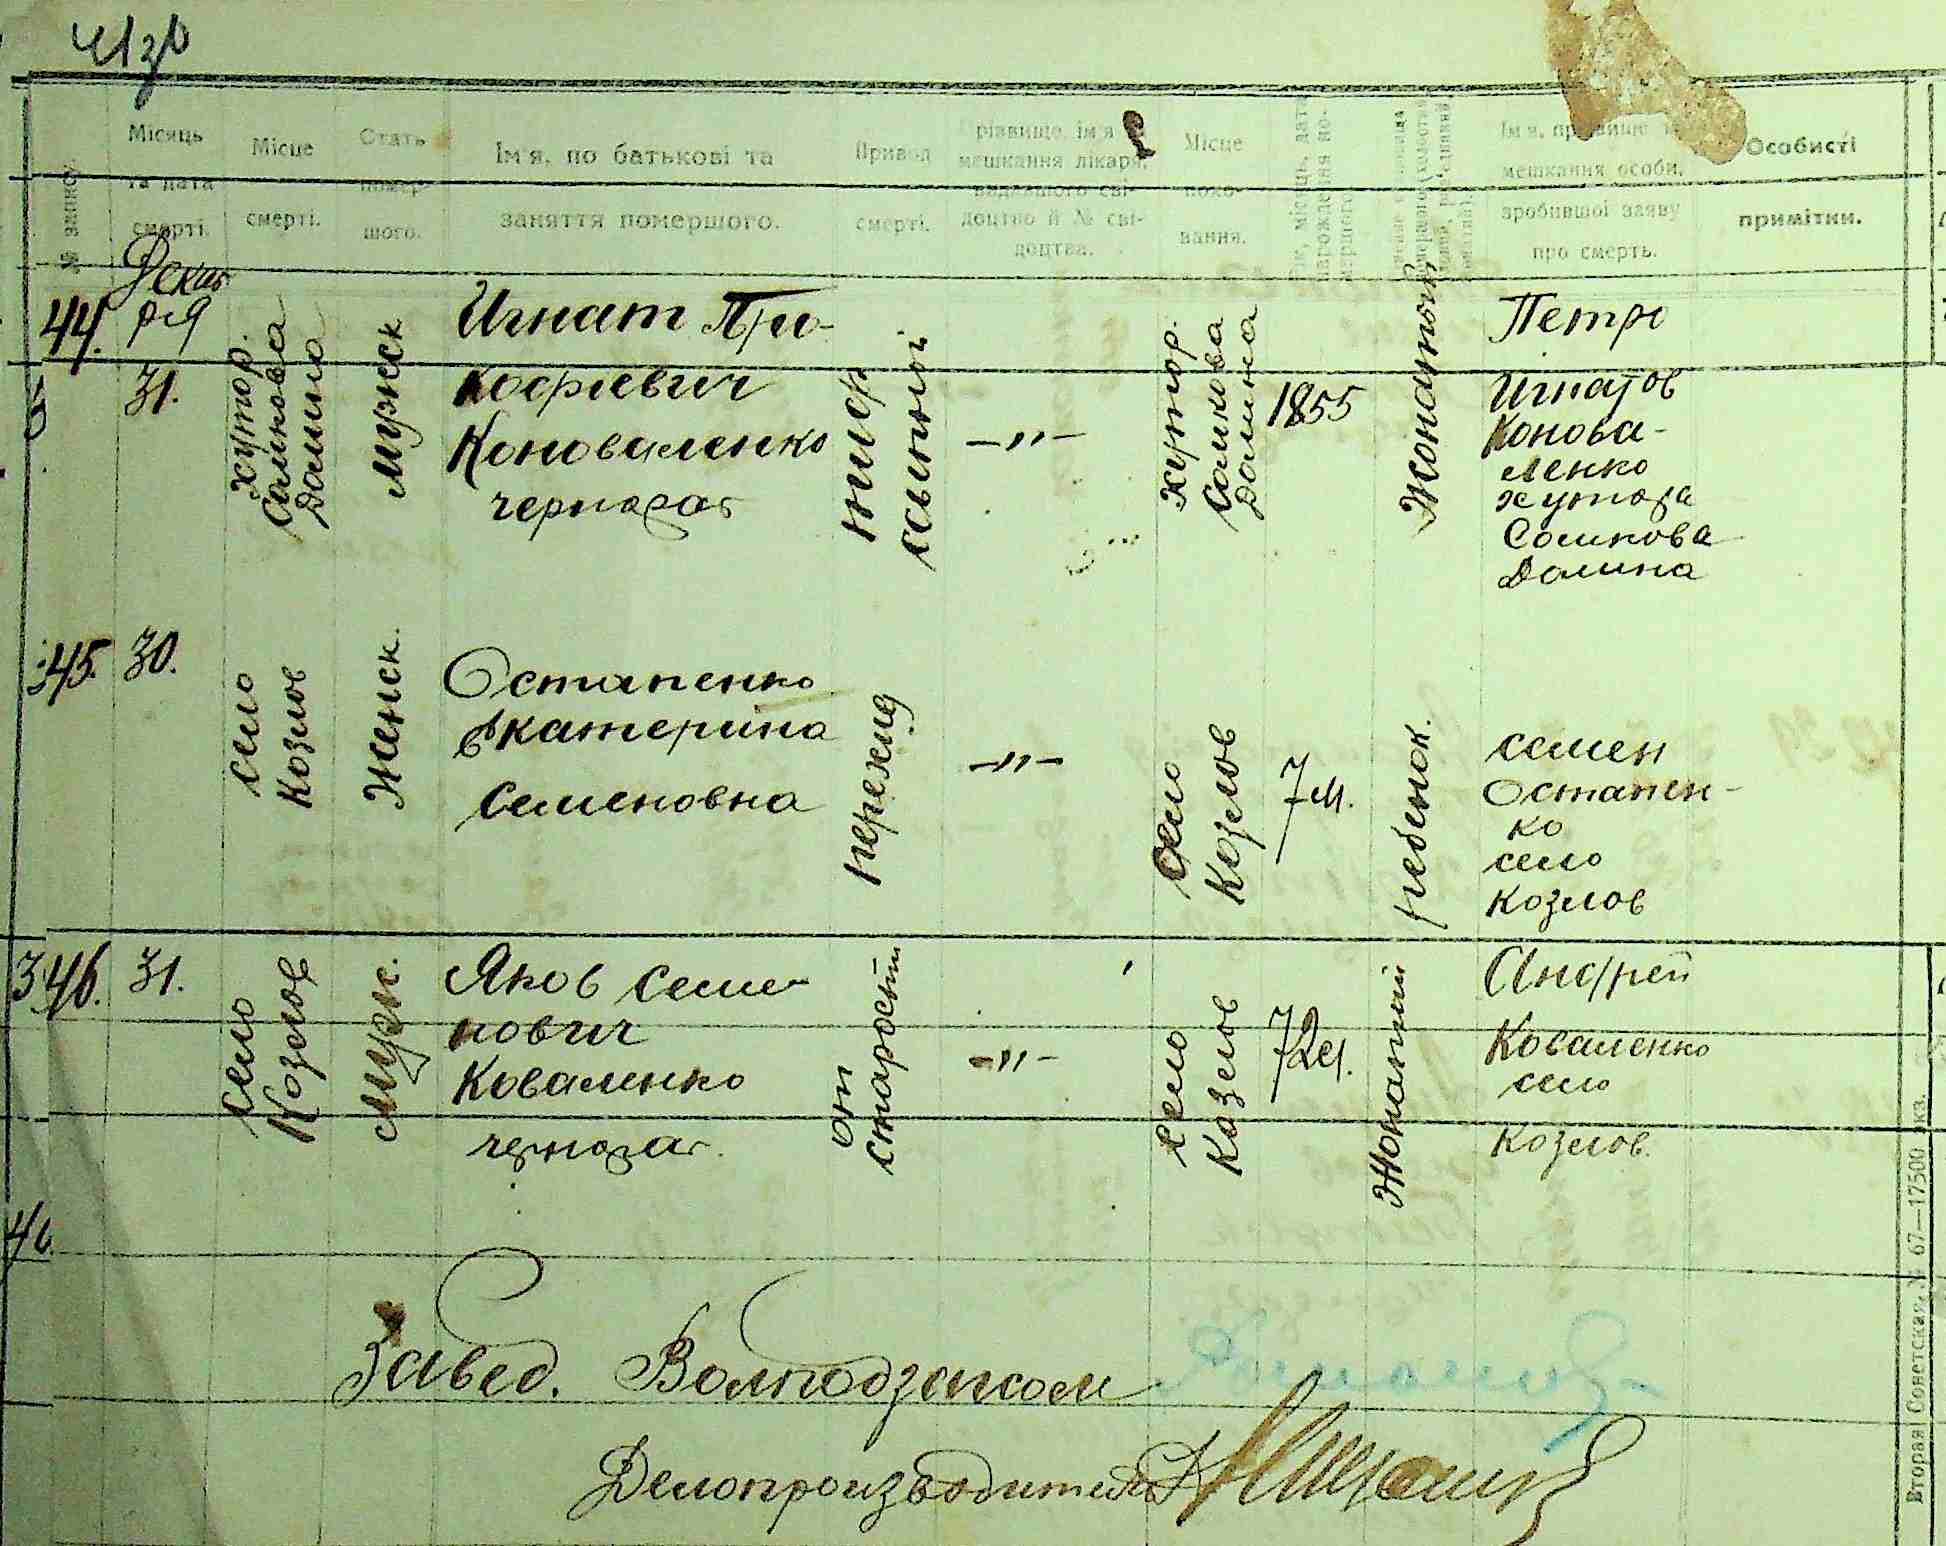 № записи.
Місяць
та дата
смерті.
Місце
смерті.
Стать
помер-
шого.
Ім'я, по батькові та
заняття помершого.
Привод
смерті.
Прівище, ім'я й
мешкання лікаря,
видавшого сві-
доцтво й № сві-
доцтва.
Місце
похо-
вання.
Ім'я, прізвище й
мешкання особи,
зробившої заяву
про смерть.
Особисті
примітки.
44.
Декаб
ря
31.
хутор.
Сомкова
Долина
мужск
Игнат Про-
кофиевич
Коноваленко
чернораб
тиф
сыпной
—„—
хутор.
Сомкова
Долина
1855
Жонатый
Петро
Игнатов
Конова-
ленко
хутора
Сомкова
Долина
345.
30.
село
Козлов
Женск.
Остапенко
Екатерина
Семеновна
—„—
село
Козлов
7 м.
ребенок.
семен
Остапен-
ко
село
Козлов
346.
31.
село
Козлов
Муж.
Яков Семе-
нович
Коваленко
чернораб.
от
старости
—„—
село
Козлов
72
Жонатый
Андрей
Коваленко
село
Козлов.
Завед. Волподзагсом
Делопроизводитель
Вторая Советская, № 67—17500 экз.